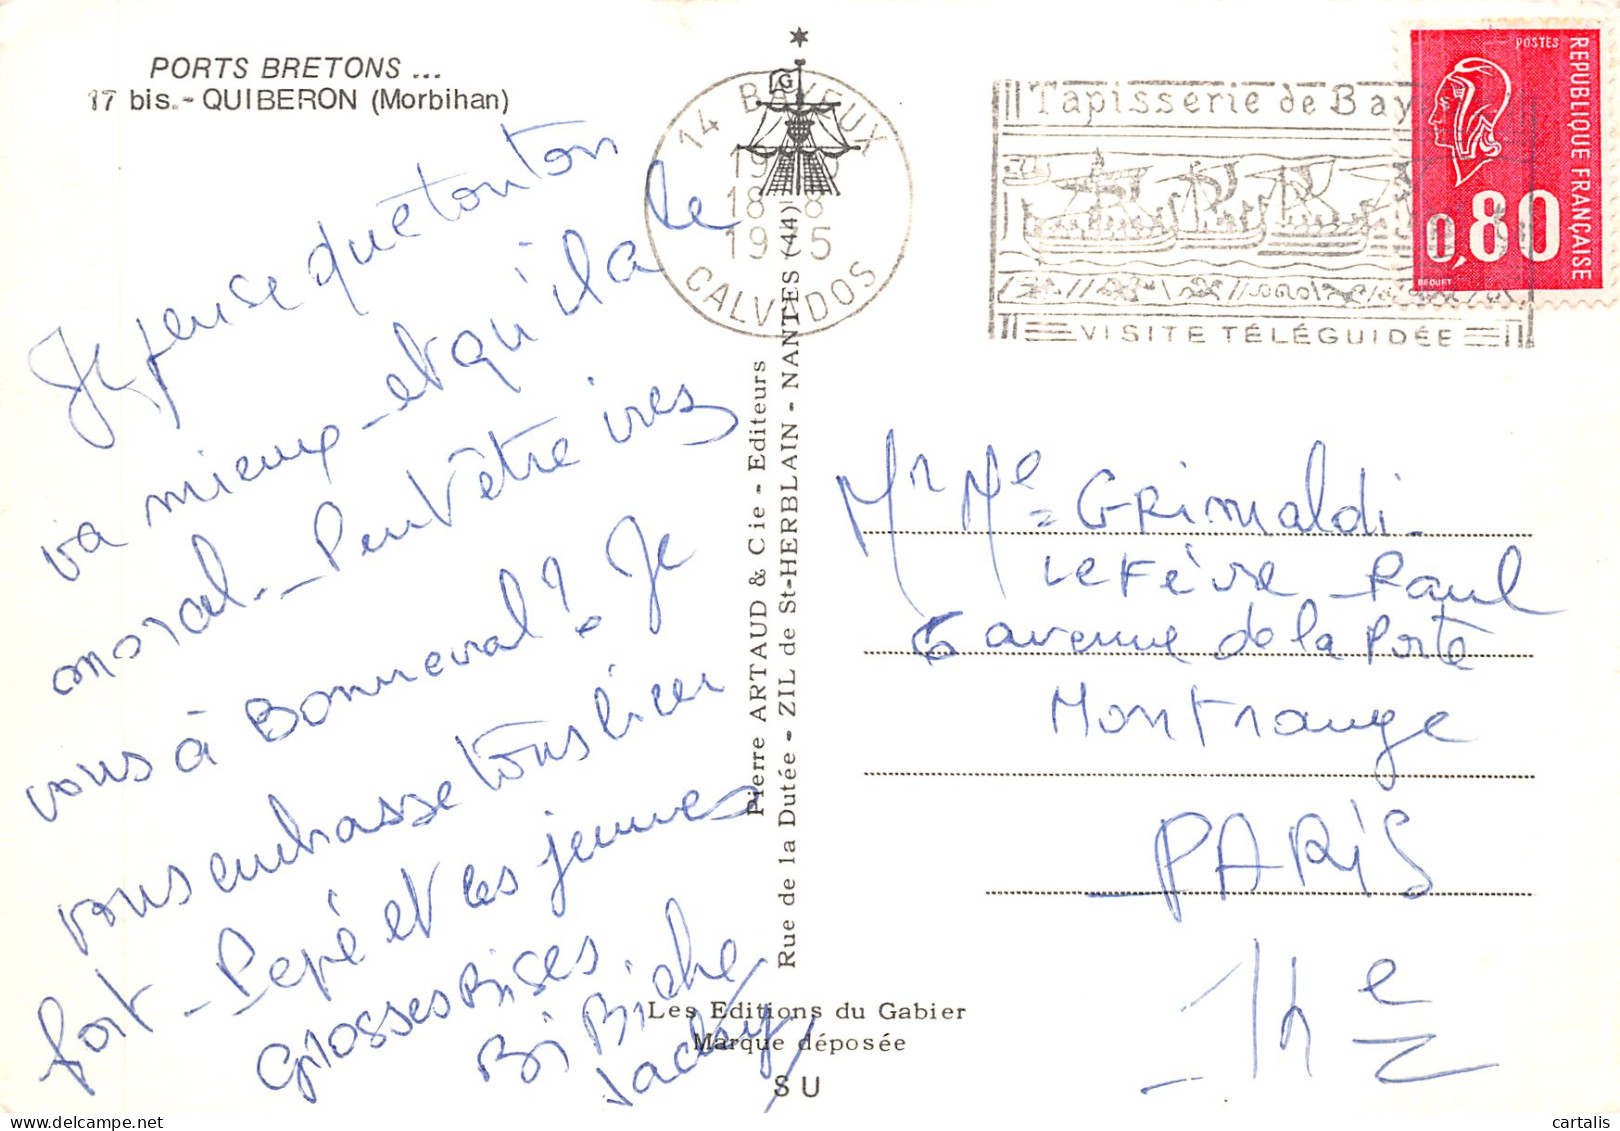 PORTS BRETONS ...
17 bis. - QUIBERON (Morbihan)
Je pense que tonton
va mieux - et qu'il a le
moral. - Peut être irez
vous à Bonneval ? Je
vous embrasse tous bien
fort - Pepé et les jeunes
Grosses Bises.
Bi Biche
Jacky
14 BAYEUX
18 - 8
CALVADOS
Tapisserie de Bay
VISITE TÉLÉGUIDÉE
POSTES
REPUBLIQUE FRANÇAISE
0,80
BEQUET
G
Pierre ARTAUD & Cie - Editeurs
Rue de la Dutée - ZIL de St-HERBLAIN - NANTES (44)
Mr Me = GRimaldi -
LeFèvre Paul
6 avenue de la Porte
Montrouge
PARIS
14 e
Les Editions du Gabier
Marque déposée
S U
cartalis on delcampe.net